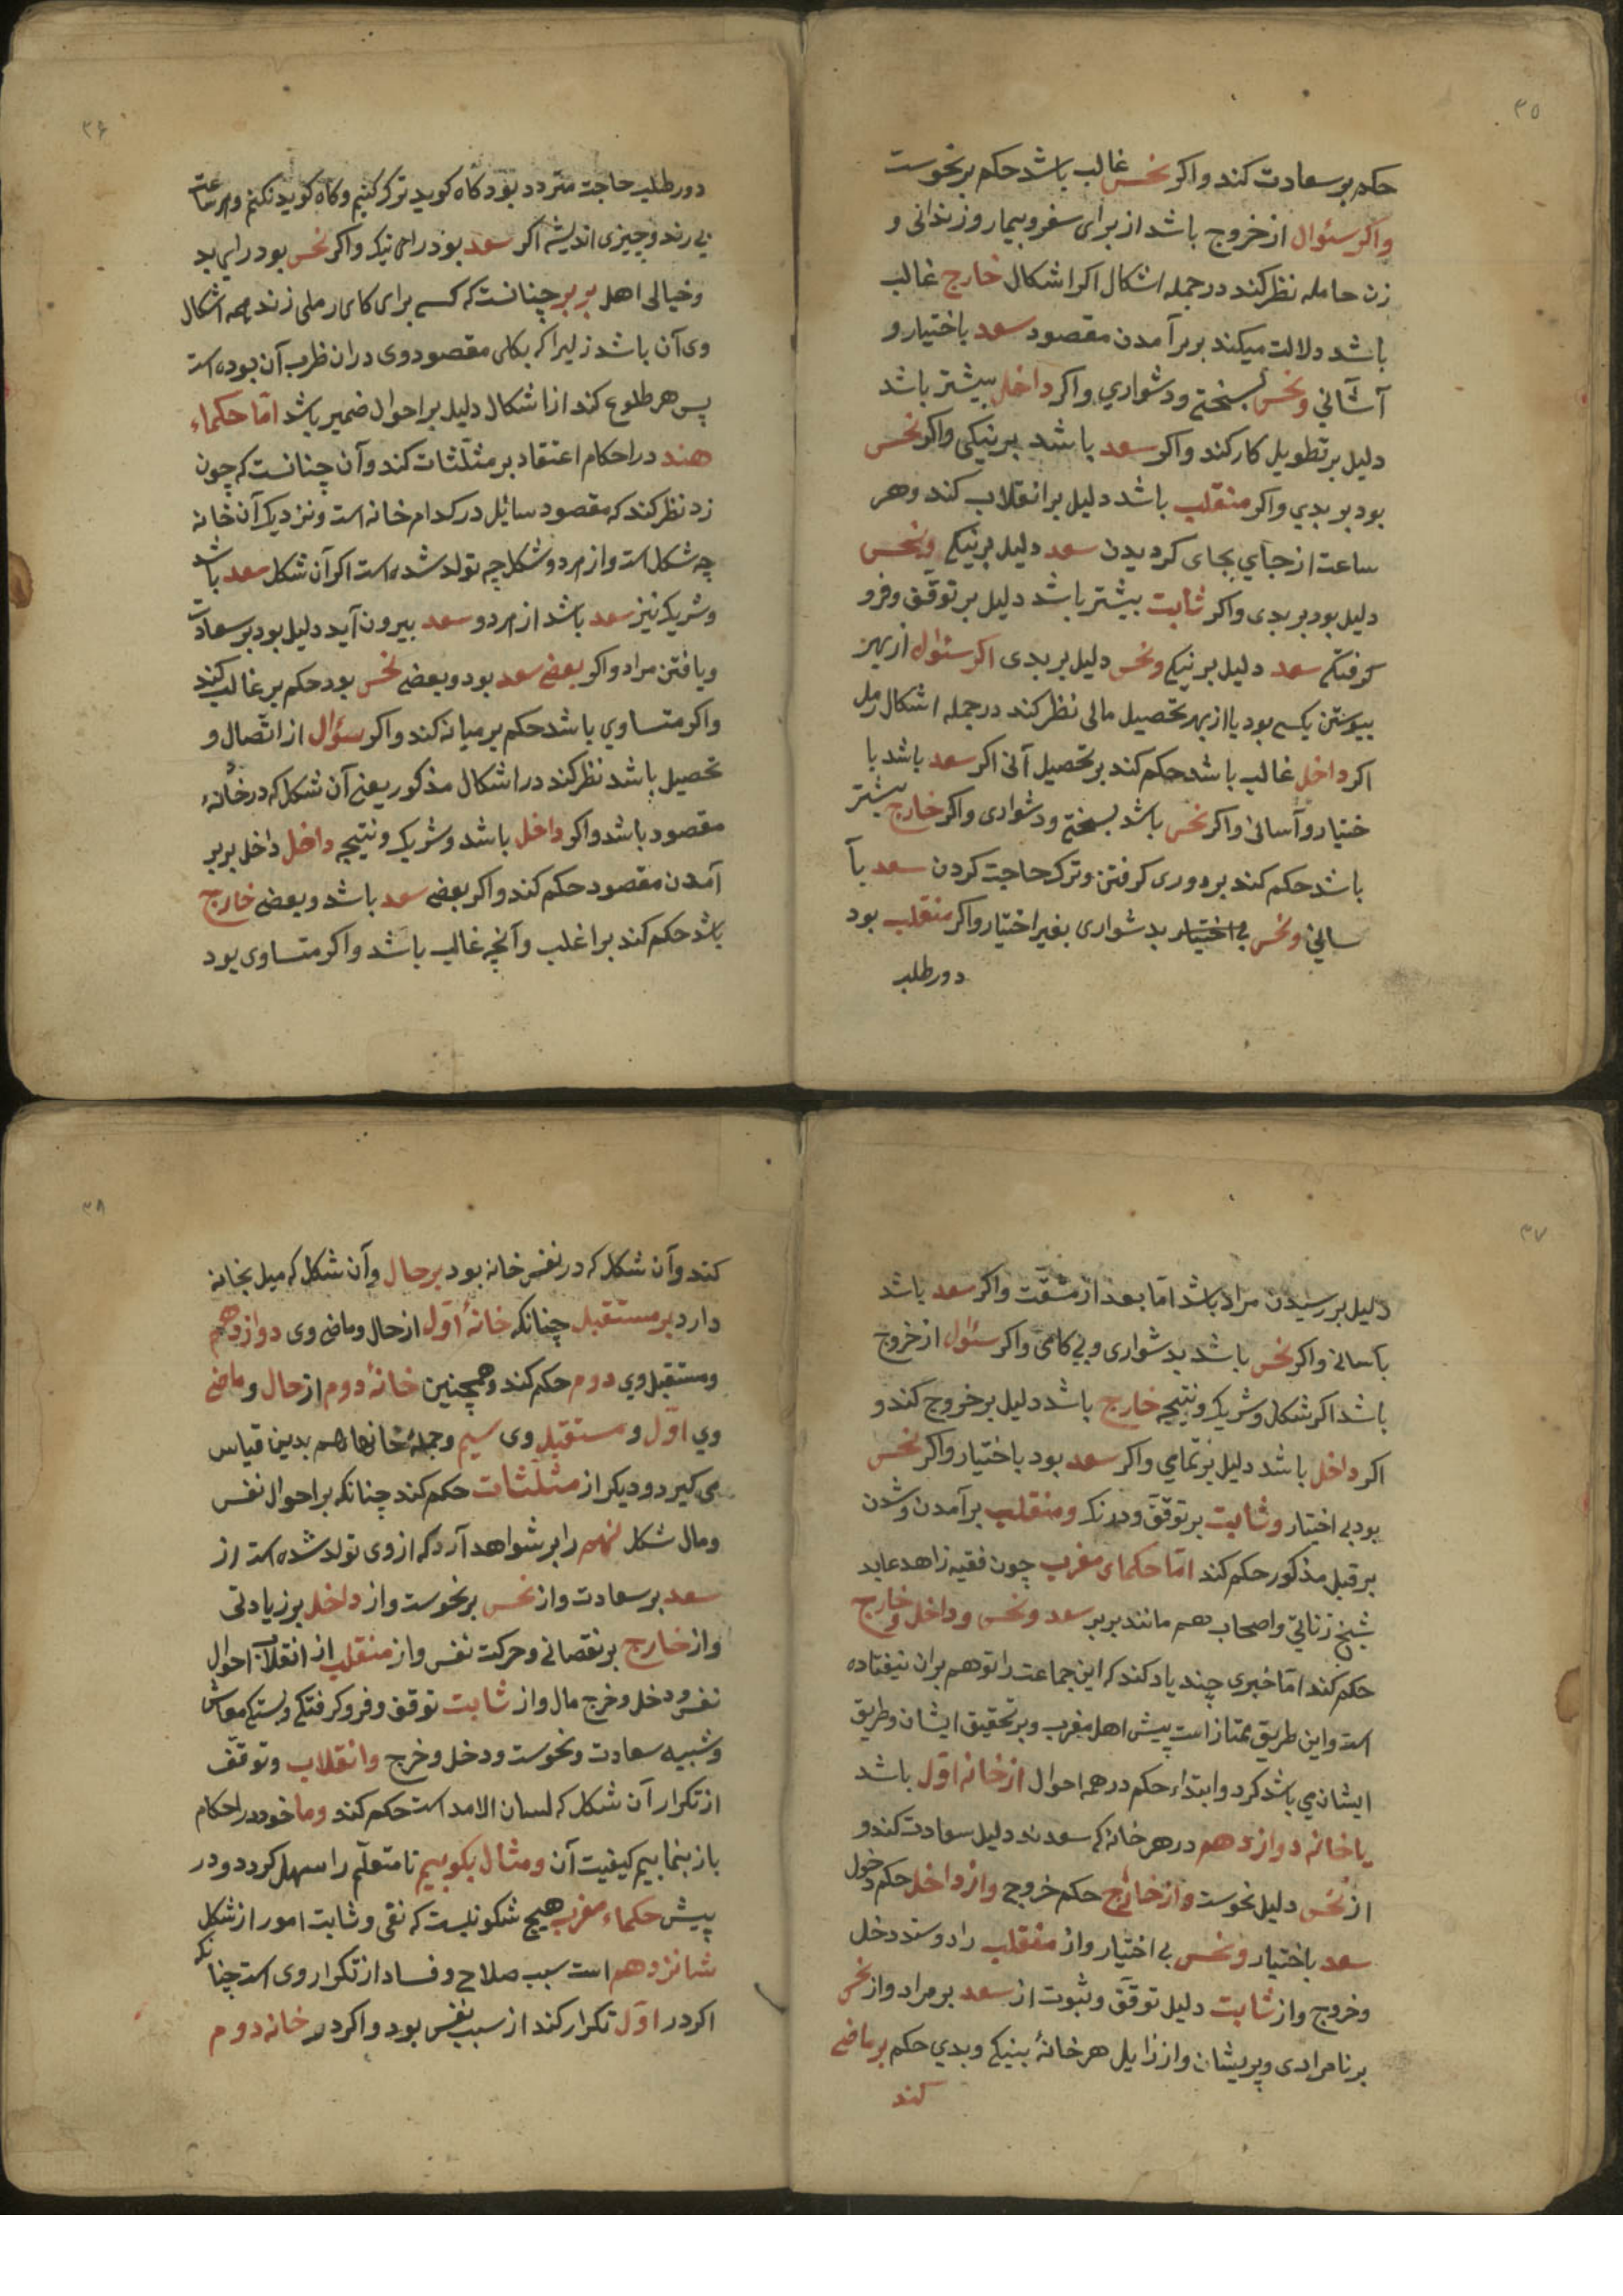 ۳۵
حکم بر سعادت کند واکر نحس غالب باشد حکم بر نحوست
واکر سئوال از خروج باشد از برای سفر وبیمار وزندانی و
زن حامله نظر کند در جمله اشکال اکر اشکال خارج غالب
باشد دلالت میکند بر برآمدن مقصود سعد باختیار و
آسانی ونحس بسختی ودشواری واکر داخل بیشتر باشد
دلیل بر تطویل کار کند واکر سعد باشد بر نیکی واکر نحس
بود بر بدی واکر منقلب باشد دلیل بر انقلاب کند وهر
ساعت از جای بجای کردیدن سعد دلیل بر نیکی ونحس
دلیل بود بر بدی واکر ثابت بیشتر باشد دلیل بر توقف وفرو
کرفتکی سعد دلیل بر نیکی ونحس دلیل بر بدی اکر سئوال از بهر
پیوستن بکسی بود یا از بهر تحصیل مالی نظر کند در جمله اشکال رمل
اکر داخل غالب باشد حکم کند بر تحصیل آنی اکر سعد باشد با
ختیار وآسانی واکر نحس باشد بسختی ودشواری واکر خارج بیشتر
باشد حکم کند بر دوری کرفتن وترک حاجت کردن سعد بآ
سانی ونحس بی اختیار بدشواری بغیر اختیار واکر منقلب بود
دورطلب
۳۶
دورطلب حاجت متردد بود کاه کوید ترک کنیم وکاه کوید نکنیم وهر ساعت
پی رند وچیزی اندیشه اکر سعد بود رای نیک واکر نحس بود رای بد
وخیالی اهل بربر چنانست که کسی برای کاری رملی زند همه اشکال
وی آن باشد زلیراکه بکلی مقصود وی دران ظرب آن بوده است
پس هر طلوع کند از اشکال دلیل بر احوال ضمیر باشد امّا حکماء
هند در احکام اعتقاد بر مثلّثات کند وآن چنانست که چون
زد نظر کند که مقصود سایل در کدام خانه است ونزدیک آن خانه
چه شکل است واز هر دو شکل چه تولد شده است اکر آن شکل سعد باشد
وشریک نیز سعد باشد از هر دو سعد بیرون آید دلیل بود بر سعادت
ویافتن مراد واکر بعضی سعد بود وبعضی نحس بود حکم بر غالب کند
واکر متساوی باشد حکم بر میانه کند واکر سؤال از اتّصال و
تحصیل باشد نظر کند در اشکال مذکور یعنی آن شکل که در خانهٔ
مقصود باشد واکر داخل باشد وشریک ونتیجه داخل داخل بر بر
آمدن مقصود حکم کند واکر بعضی سعد باشد وبعضی خارج
باشد حکم کند بر اغلب وآنچه غالب باشد واکر متساوی بود
۳۷
دلیل بر رسیدن مراد باشد امّا بعد از مشقّت واکر سعد باشد
بآسانی واکر نحس باشد بدشواری وبی کامی واکر سئول از خروج
باشد اکر شکل وشریک ونتیجه خارج باشد دلیل بر خروج کند و
اکر داخل باشد دلیل بر تمامی واکر سعد بود باختیار واکر نحس
بود بی اختیار وثابت بر توقّف ودرنک ومنقلب بر آمدن وشدن
بر قبل مذکور حکم کند امّا حکمای مغرب چون فقیه زاهد عابد
شیخ زناتی واصحاب هم مانند بربر سعد ونحس وداخل وخارج
حکم کند امّا خبری چند یاد کند که این جماعت را توهم بران نیفتاده
است واین طریق ممتاز است پیش اهل مغرب وبر تحقیق ایشان وطریق
ایشان می باشد کرد وابتداء حکم در همه احوال از خانه اوّل باشد
یا خانه دوازدهم در هر خانه که سعدند دلیل سعادت کند و
از نحس دلیل نحوست واز خارج حکم خروج واز داخل حکم دخول
سعد باختیار ونحس بی اختیار واز منقلب راد وستد دخل
وخروج واز ثابت دلیل توقّف وثبوت از سعد بر مراد واز نحس
بر نامرادی وپریشان واز زایل هر خانهٔ بنیکی وبدی حکم بر ماضی
کند
۳۸
کند وآن شکل که در نفس خانه بود بر حال وآن شکل که میل بخانه
دارد بر مستقبل چنانکه خانهٔ اوّل از حال وماضی وی دوازدهم
ومستقبل وی دوم حکم کند وهمچنین خانهٔ دوم از حال وماضی
وی اوّل ومستقبل وی سیم وجملهٔ خانها هم بدین قیاس
می کیرد ودیکر از مثلّثات حکم کند چنانکه بر احوال نفس
ومال شکل نهم را بر شواهد آرد که از وی تولد شده است از
سعد بر سعادت واز نحس بر نحوست واز داخل بر زیادتی
واز خارج بر نقصانی وحرکت نفس واز منقلب از انقلاب احوال
نفس ودخل وخرج مال واز ثابت توقف وفرو کرفتکی وبستکی معاش
وشبیه سعادت ونحوست ودخل وخرج وانقلاب وتوقّف
از تکرار آن شکل که لسان الامد است حکم کند وما خود در احکام
باز بنمابیم کیفیت آن ومثال بکوبیم تا متعلّم را سهل کردد ودر
پیش حکماء مغرب هیچ شکو نیست که نفی وثابت امور از شکل
شانزدهم است سبب صلاح وفساد از تکرار وی است چنانکه
اکر در اوّل تکرار کند از سبب نفس بود واکر در خانه دوم